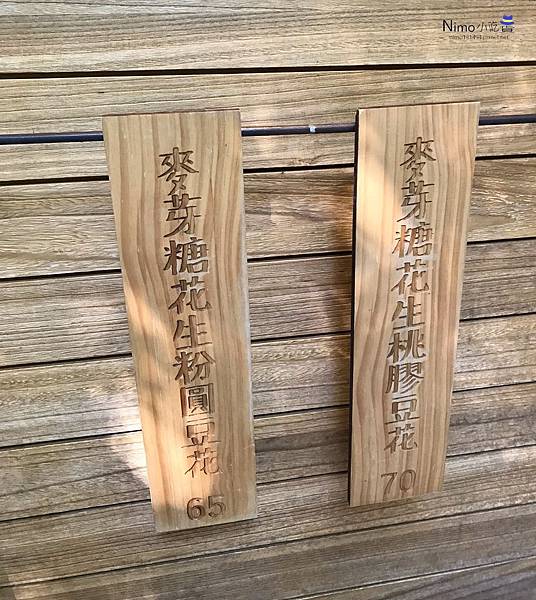 Nimo小吃
麥芽糖花生粉圓豆花
65
麥芽糖花生桃膠豆花
70